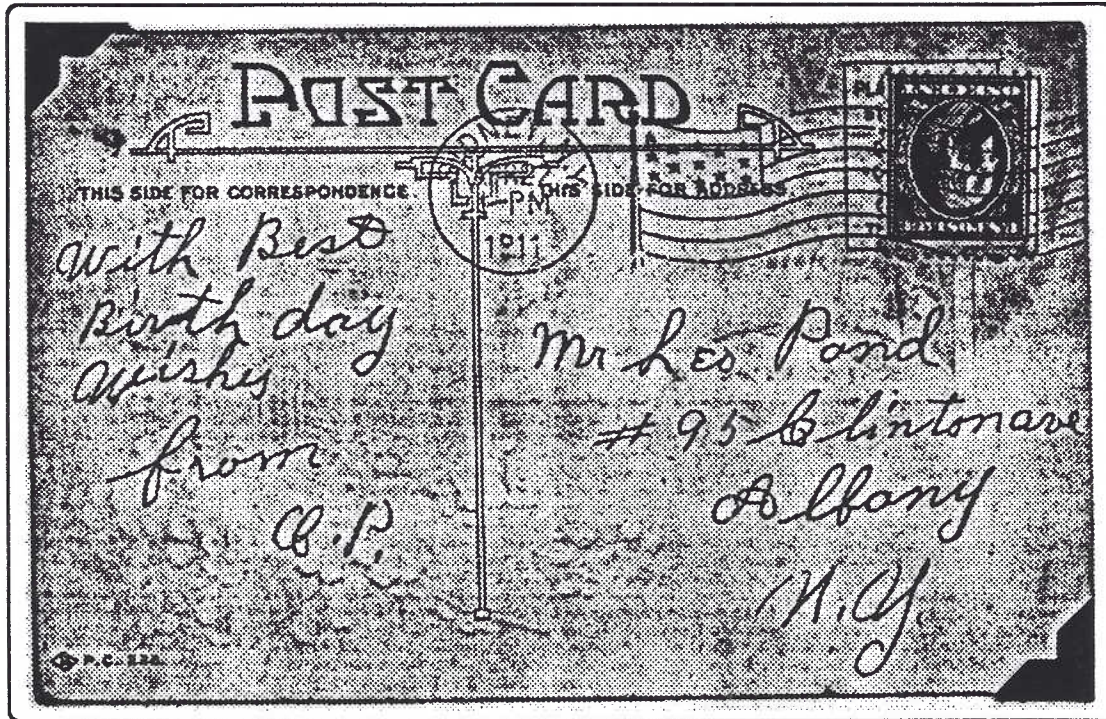 POST CARD
THIS SIDE FOR CORRESPONDENCE.
THIS SIDE FOR ADDRESS.
PM
1911
With Best
Birth day
Wishes
from
C.P.
Mr Leo Pond
# 95 Clinton ave
Albany
N.Y.